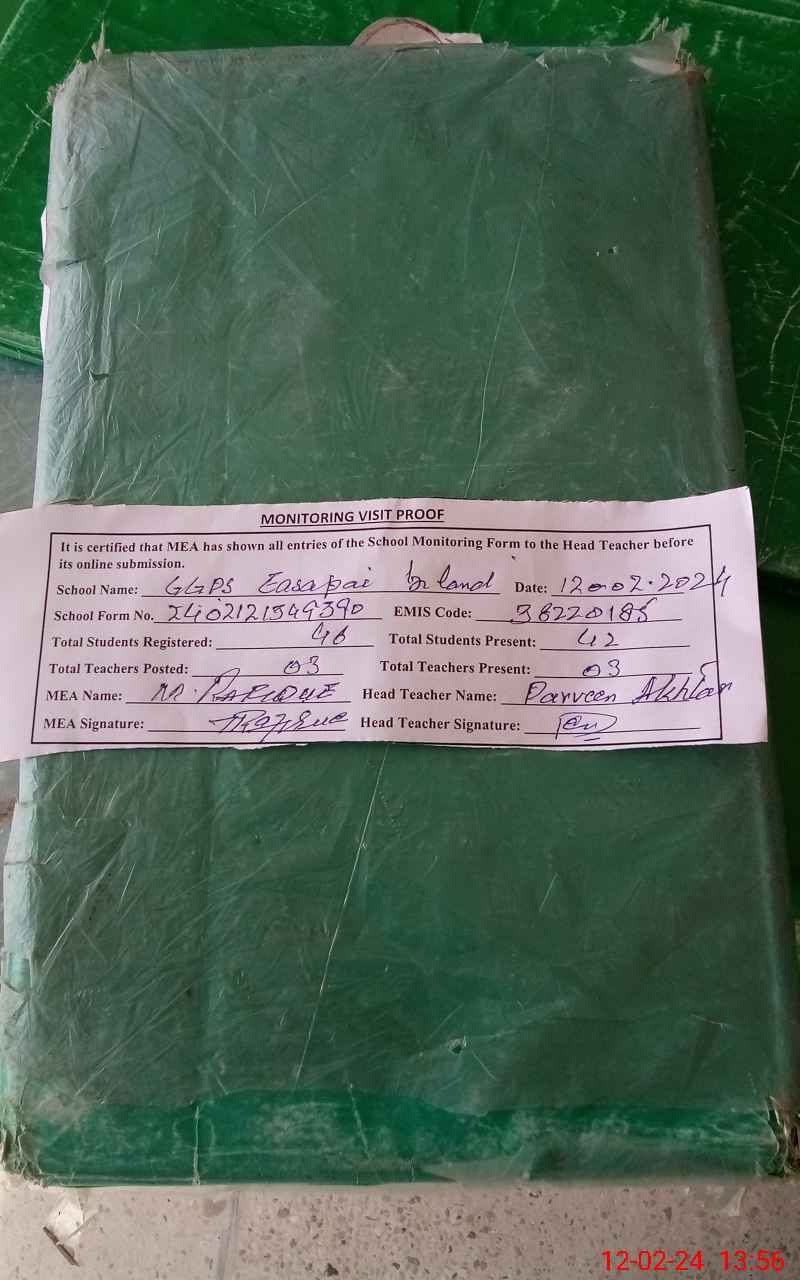 MONITORING VISIT PROOF
It is certified that MEA has shown all entries of the School Monitoring Form to the Head Teacher before
its online submission.
School Name: GGPS Easapai Date: 12-02-2024
School Form No. 2402121349390 EMIS Code: 38220185
Total Students Registered: 46 Total Students Present: 42
Total Teachers Posted: 03 Total Teachers Present: 03
MEA Name: M. Head Teacher Name: Parveen Akhtar
MEA Signature: Head Teacher Signature:
12-02-24 13:56